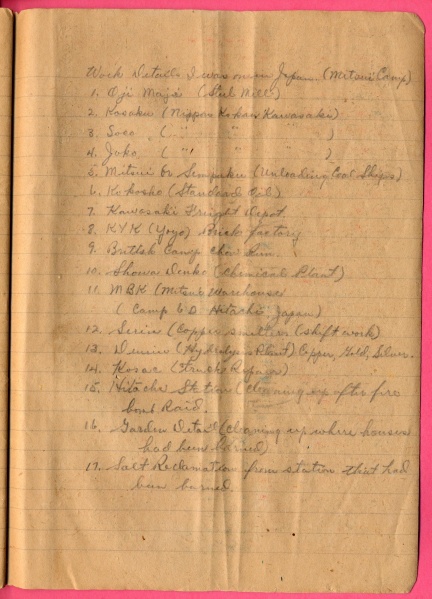 Work Details I was on in Japan. (Mitsui Camp)
1. Oji Maji (Steel Mill)
2. Kosaku (Nippon Kokan Kawasaki)
3. Soco ( " " " )
4. Joko ( " " )
5. Mitsui Or Sempaku (Unloading Coal Ships)
6. Kokosho (Standard Oil)
7. Kawasaki Freight Depot.
8. KYK (Yoyo) Brick factory
9. British Camp Chow Run.
10. Showa Denko (Chemical Plant)
11. MBK (Mitsui Warehouse)
(Camp 6 D Hitachi Japan)
12. Seirin (Copper smelter (shift work)
13. Denrin (Hydrolysis Plant) Copper, Gold, Silver.
14. Kosac (Truck Repairs)
15. Hitachi Station (cleaning up after fire
bomb Raid.
16. Garden Detail (cleaning up where houses
had been burned)
17. Salt Reclamation from station that had
been burned.